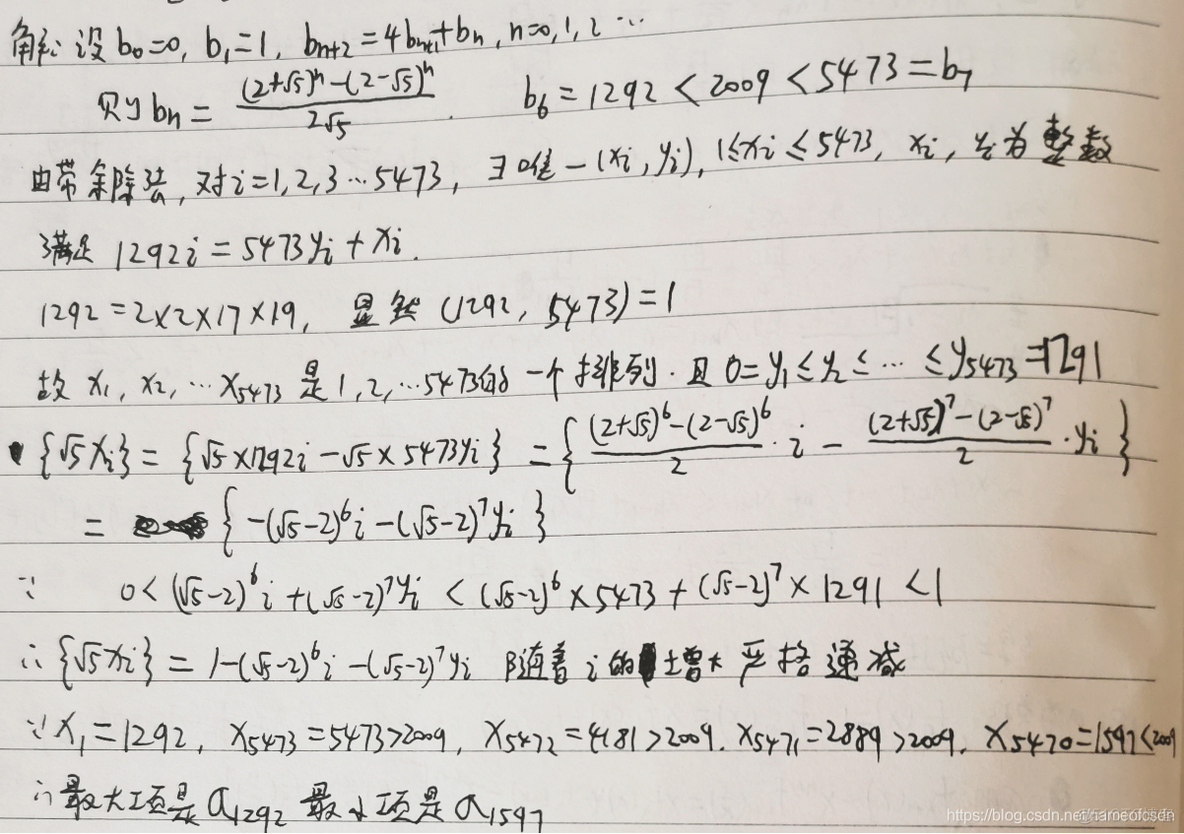 解: 设 b₀=0, b₁=1, bₙ₊₂=4bₙ₊₁+bₙ, n=0,1,2…
则 bₙ = ((2+√5)ⁿ-(2-√5)ⁿ)/(2√5). b₆=1292<2009<5473=b₇
由带余除法, 对 i=1,2,3…5473, ∃唯一(xᵢ,yᵢ), 1≤xᵢ≤5473, xᵢ, yᵢ为整数
满足 1292i=5473yᵢ+xᵢ.
1292=2×2×17×19, 显然 (1292, 5473)=1
故 x₁, x₂, …x₅₄₇₃ 是 1,2,…5473的一个排列. 且 0=y₁≤y₂≤…≤y₅₄₇₃=1291
{√5xᵢ}={√5×1292i-√5×5473yᵢ}={((2+√5)⁶-(2-√5)⁶)/2·i-((2+√5)⁷-(2-√5)⁷)/2·yᵢ}
= {-(√5-2)⁶i-(√5-2)⁷yᵢ}
∵ 0<(√5-2)⁶i+(√5-2)⁷yᵢ<(√5-2)⁶×5473+(√5-2)⁷×1291<1
∴{√5xᵢ}=1-(√5-2)⁶i-(√5-2)⁷yᵢ 随着 i 的增大严格递减
∵x₁=1292, x₅₄₇₃=5473>2009, x₅₄₇₂=4181>2009. x₅₄₇₁=2889>2009, x₅₄₇₀=1597<2009
∴最大项是a₁₂₉₂ 最小项是a₁₅₉₇
https://blog.csdn.net/nameofcsdn